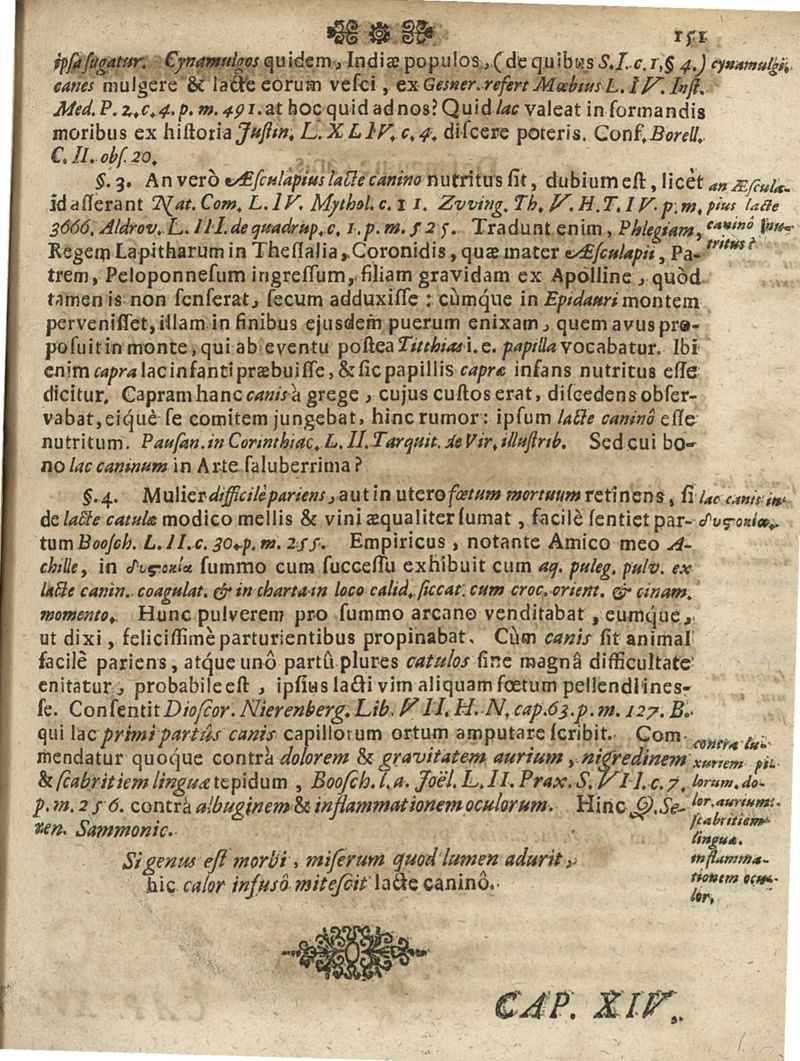 151
ipsa sugatur. Cynamulgos quidem, Indiæ populos, (de quibus S. I. c. 1, § 4.)
canes mulgere & lacte eorum vesci, ex Gesner. refert Mœbius L. IV. Inst.
Med. P. 2. c. 4. p. m. 491. at hoc quid ad nos? Quid lac valeat in formandis
moribus ex historia Justin. L. XLIV. c. 4. discere poteris. Conf. Borell.
C. II. obs. 20.
cynamulgii.
§. 3. An verò Æsculapius lacte canino nutritus sit, dubium est, licèt
id asserant Nat. Com. L. IV. Mythol. c. 11. Zvving. Th. V. H. T. IV. p. m.
3666. Aldrov. L. III. de quadrup. c. 1. p. m. 525. Tradunt enim, Phlegiam,
Regem Lapitharum in Thessalia, Coronidis, quæ mater Æsculapii, Pa-
trem, Peloponnesum ingressum, filiam gravidam ex Apolline, quòd
tamen is non senserat, secum adduxisse: cùmque in Epidauri montem
pervenisset, illam in finibus ejusdem puerum enixam, quem avus pro-
posuit in monte, qui ab eventu postea Titthias i. e. papilla vocabatur. Ibi
enim capra lac infanti præbuisse, & sic papillis capræ infans nutritus esse
dicitur. Capram hanc canis à grege, cujus custos erat, discedens obser-
vabat, eiquè se comitem jungebat, hinc rumor: ipsum lacte caninô esse
nutritum. Pausan. in Corinthiac. L. II. Tarquit. de Vir. illustrib. Sed cui bo-
no lac caninum in Arte saluberrima?
an Æscula-
pius lacte
caninô nu-
tritus?
§. 4. Mulier difficilè pariens, aut in utero fœtum mortuum retinens, si
de lacte catulæ modico mellis & vini æqualiter sumat, facilè sentiet par-
tum Boosch. L. II. c. 30. p. m. 255. Empiricus, notante Amico meo A-
chille, in δυςτοκίᾳ summo cum successu exhibuit cum aq. puleg. pulv. ex
lacte canin. coagulat. & in charta in loco calid. siccat. cum croc. orient. & cinam.
momento. Hunc pulverem pro summo arcano venditabat, eumque,
ut dixi, felicissimè parturientibus propinabat. Cùm canis sit animal
facilè pariens, atque unô partû plures catulos sine magnâ difficultate
enitatur, probabile est, ipsius lacti vim aliquam fœtum pellendi ines-
se. Consentit Dioscor. Nierenberg. Lib. VII. H. N. cap. 63. p. m. 127. B.
qui lac primi partûs canis capillorum ortum amputare scribit. Com-
mendatur quoque contrà dolorem & gravitatem aurium, nigredinem
& scabritiem linguæ tepidum, Boosch. l. a. Joël. L. II. Prax. S. VII. c. 7.
p. m. 256. contrà albuginem & inflammationem oculorum. Hinc Q. Se-
ren. Sammonic.
lac canis in
δυςτοκίᾳ.
contra lu-
xuriem pi-
lorum. do-
lor. aurium.
scabritiem
linguæ.
inflamma-
tionem ocu-
lor.
Si genus est morbi, miserum quod lumen adurit,
hic calor infusô mitescit lacte caninô.
CAP. XIV.